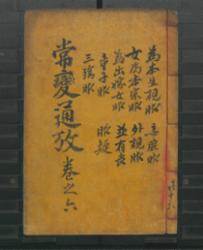 為本生親服
女為本宗服 外親服
為出嫁女服 並有喪
童子服 服疑
三殤服
常變通攷 卷之六